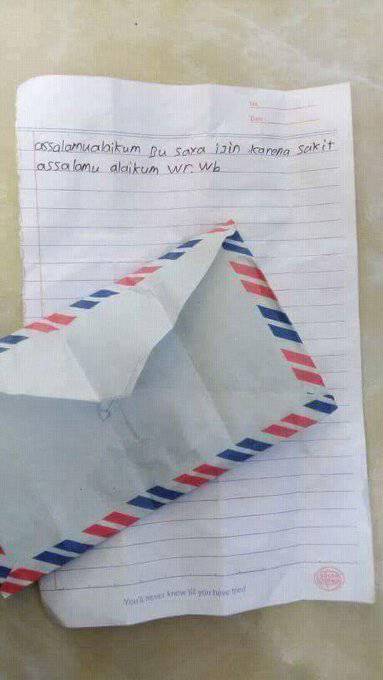 No.
Date.
assalamualaikum Bu saya izin karena sakit
assalamu alaikum wr. wb
You'll never know till you have tried